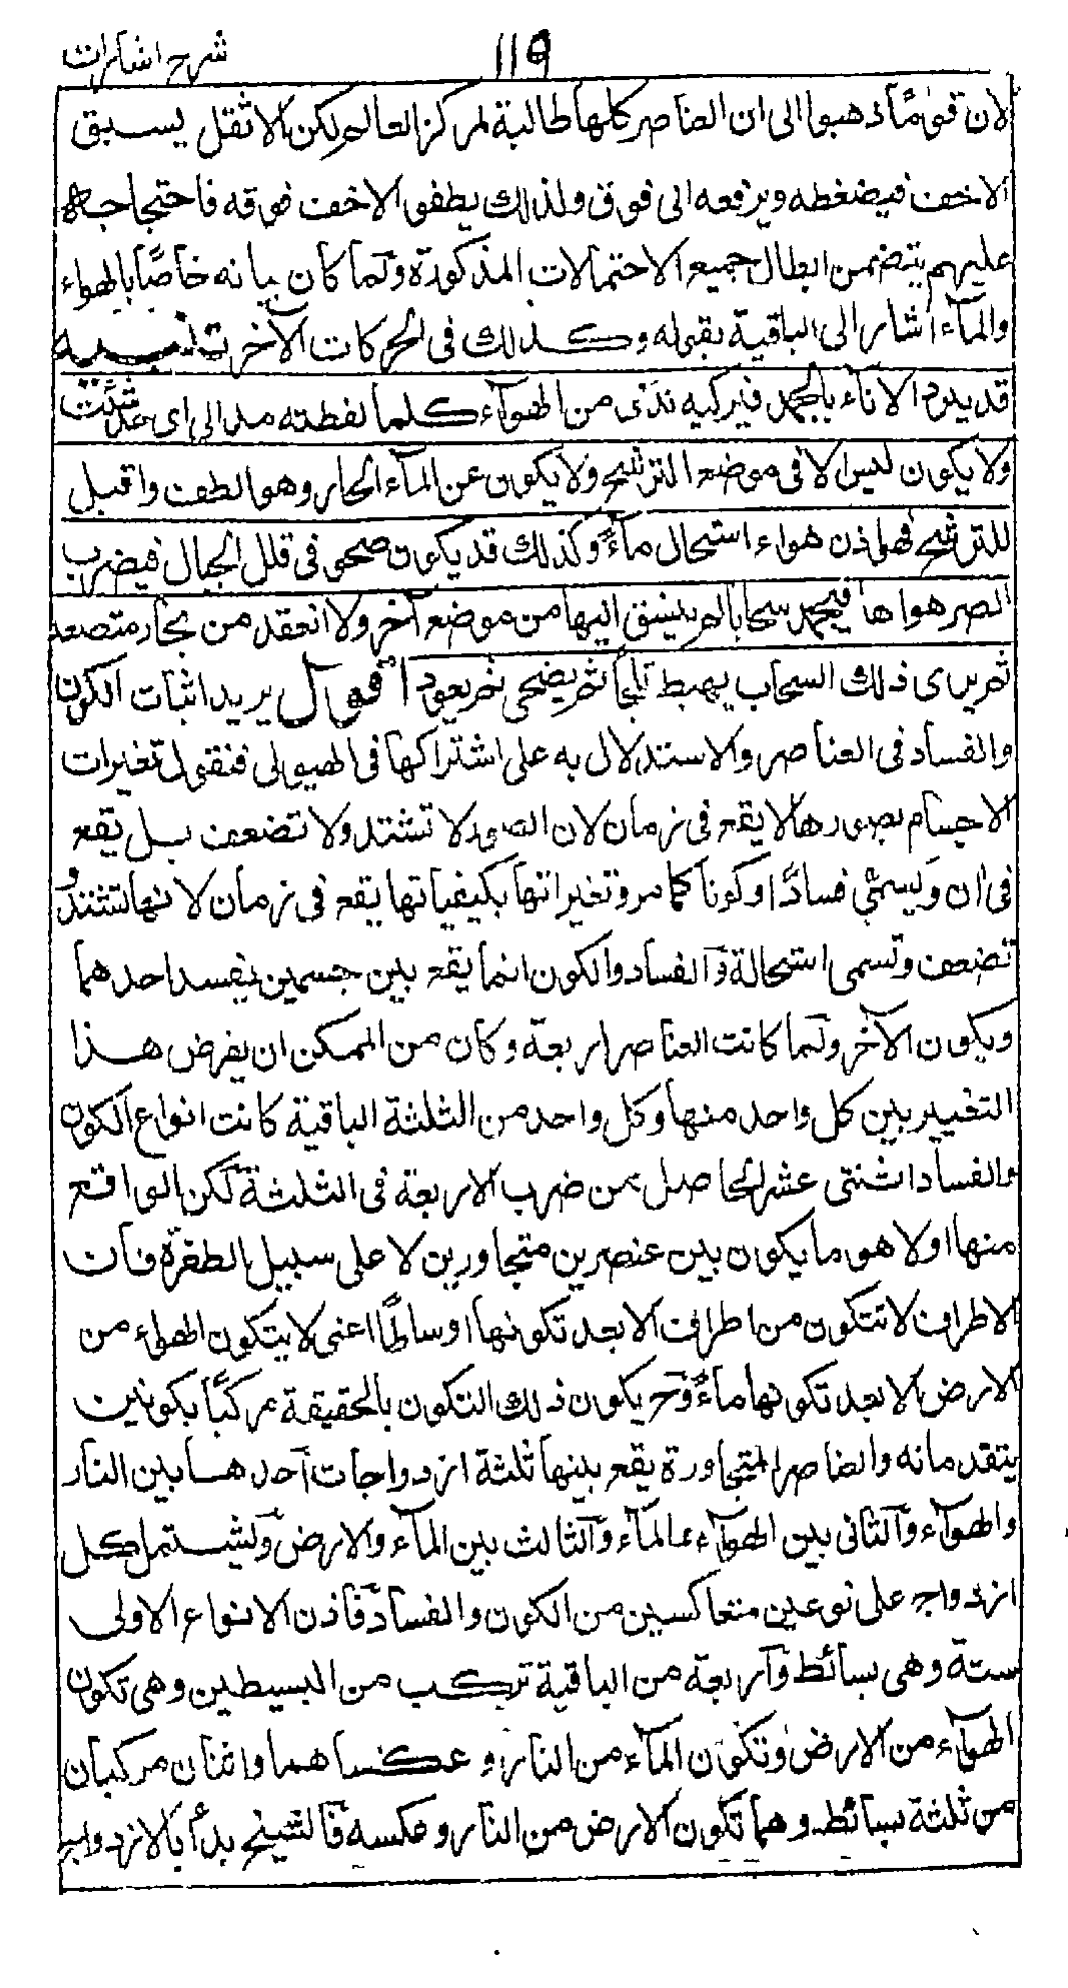 شرح اشارات
١١٩
لان قوما ذهبوا الى ان العناصر كلها طالبة لمركز العالم لكن الاثقل يسبق
الاخف فيضغطه ويرفعه الى فوق ولذلك يطفو الاخف فوقه فاحتجاجه
عليهم يتضمن ابطال جميع الاحتمالات المذكورة ولما كان بيانه خاصًا بالهواء
والمآء اشار الى الباقية بقوله وكذلك فى الحركات الآخر تنبيه
قد يبرد الاناء بالجمد فيركبه ندى من الهوآء كلما لقطته مد الى اى حد شئت
ولا يكون ليس الا فى موضع الترشح ولا يكون عن المآء الحار وهو الطف واقبل
للترشح فهو اذن هواء استحال مآءً وكذلك قد يكون صحو فى قلل الجبال فيضرب
الصر هواها فيجمد سحابا لم ينسق اليها من موضع آخر ولا انعقد من بخار متصعد
ثم يرى ذلك السحاب يهبط ثلجًا ثم يضحى ثم يعود اقول يريد اثبات الكون
والفساد فى العناصر والاستدلال به على اشتراكها فى الهيولى فنقول تغيرات
الاجسام بصورها لا يقع فى زمان لان الصور لا تشتد ولا تضعف بل يقع
فى ان ويسمى فسادًا وكونا كما مر وتغيراتها بكيفياتها يقع فى زمان لانها تشتد و
تضعف وتسمى استحالة والفساد والكون انما يقع بين جسمين يفسد احدهما
ويكون الآخر ولما كانت العناصر اربعة وكان من الممكن ان يفرض هذا
التغيير بين كل واحد منها وكل واحد من الثلثة الباقية كانت انواع الكون
والفساد اثنتى عشر الحاصل من ضرب الاربعة فى الثلثة لكن الواقع
منها اولا هو ما يكون بين عنصرين متجاورين لا على سبيل الطفرة فان
الاطراف لا تتكون من اطراف الا بعد تكونها اوساطًا اعنى لا يتكون الهواء من
الارض الا بعد تكونها ماءً وح يكون ذلك التكون بالحقيقة مركبًا بكونين
يتقدمانه والعناصر المتجاورة يقع بينها ثلثة ازدواجات احدها بين النار
والهوآء والثانى بين الهوآء والمآء والثالث بين المآء والارض ويشتمل كل
ازدواج على نوعين متعاكسين من الكون والفساد فاذن الانواع الاولى
ستة وهى بسائط واربعة من الباقية تركب من البسيطين وهى تكون
الهوآء من الارض وتكون المآء من النار وعكساهما واثنان مركبان
من ثلثة بسائط وهما تكون الارض من النار وعكسه فالشيخ بدأ بالازدواج